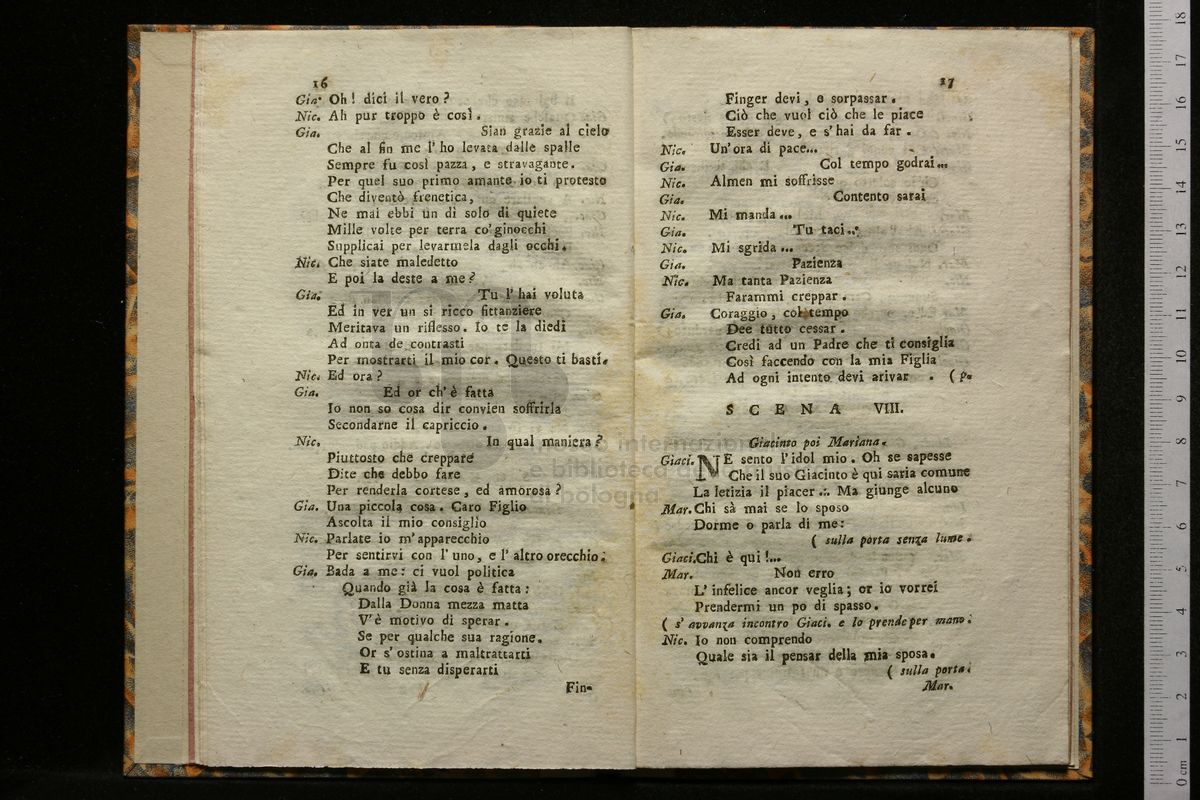 16
Gia. Oh! dici il vero?
Nic. Ah pur troppo è così.
Gia. Sian grazie al cielo
Che al fin me l'ho levata dalle spalle
Sempre fu così pazza, e stravagante.
Per quel suo primo amante io ti protesto
Che diventò frenetica,
Ne mai ebbi un dì solo di quiete
Mille volte per terra co' ginocchi
Supplicai per levarmela dagli occhi.
Nic. Che siate maledetto
E poi la deste a me?
Gia. Tu l'hai voluta
Ed in ver un sì ricco fittanziere
Meritava un riflesso. Io te la diedi
Ad onta de contrasti
Per mostrarti il mio cor. Questo ti basti.
Nic. Ed ora?
Gia. Ed or ch'è fatta
Io non so cosa dir convien soffrirla
Secondarne il capriccio.
Nic. In qual maniera?
Piuttosto che creppare
Dite che debbo fare
Per renderla cortese, ed amorosa?
Gia. Una piccola cosa. Caro Figlio
Ascolta il mio consiglio
Nic. Parlate io m'apparecchio
Per sentirvi con l'uno, e l'altro orecchio.
Gia. Bada a me: ci vuol politica
Quando già la cosa è fatta:
Dalla Donna mezza matta
V'è motivo di sperar.
Se per qualche sua ragione.
Or s'ostina a maltrattarti
E tu senza disperarti
Fin-
17
Finger devi, o sorpassar.
Ciò che vuol ciò che le piace
Esser deve, e s'hai da far.
Nic. Un'ora di pace...
Gia. Col tempo godrai...
Nic. Almen mi soffrisse
Gia. Contento sarai
Nic. Mi manda...
Gia. Tu taci...
Nic. Mi sgrida...
Gia. Pazienza
Nic. Ma tanta Pazienza
Farammi creppar.
Gia. Coraggio, col tempo
Dee tutto cessar.
Credi ad un Padre che ti consiglia
Così faccendo con la mia Figlia
Ad ogni intento devi arivar. (p.
SCENA VIII.
Giacinto poi Mariana.
Giaci. NE sento l'idol mio. Oh se sapesse
Che il suo Giacinto è qui saria comune
La letizia il piacer.:. Ma giunge alcuno
Mar. Chi sà mai se lo sposo
Dorme o parla di me:
( sulla porta senza lume.
Giaci. Chi è qui!...
Mar. Non erro
L'infelice ancor veglia; or io vorrei
Prendermi un po di spasso.
( s'avvanza incontro Giaci. e lo prende per mano.
Nic. Io non comprendo
Quale sia il pensar della mia sposa.
( sulla porta.
Mar.